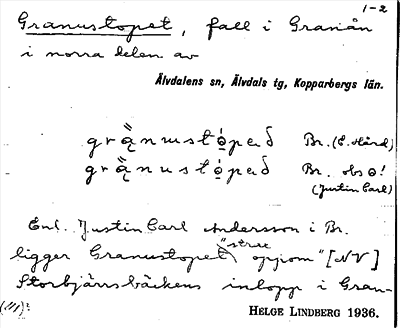 1-2
Granustopet, fall i Granån
i norra delen av
Älvdalens sn, Älvdals tg, Kopparbergs län.
Br. (E. Hård)
Br. obs o!
(Justin Carl)
Enl. Justin Carl Andersson i Br.
ligger Granustopet "strax oppom" [NV]
Storbjärnsbäckens inlopp i Gran-
HELGE LINDBERG 1936.